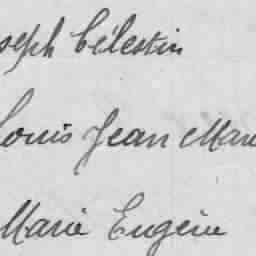 seph Célestin
Louis Jean Marie
Marie Eugène